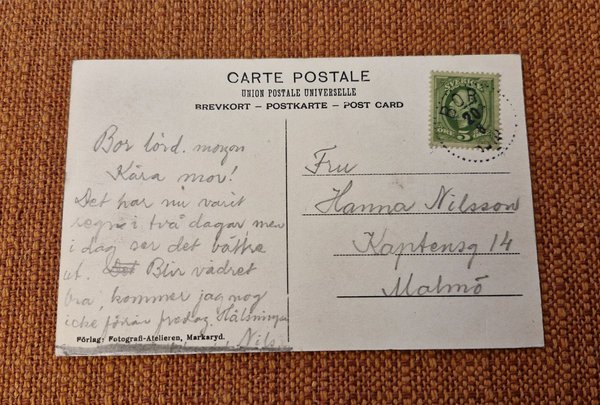 CARTE POSTALE
UNION POSTALE UNIVERSELLE
BREVKORT – POSTKARTE – POST CARD
SVERIGE
5
ÖRE
BOR
20
Bor lörd. morgon
Kära mor!
Det har nu varit
regn i två dagar men
i dag ser det bättre
ut. Det Blir vädret
bra, kommer jag nog
icke förrän fredag Hälsningar
Nils
Fru
Hanna Nilsson
Kaptensg 14
Malmö
Förlag: Fotografi-Atelieren, Markaryd.